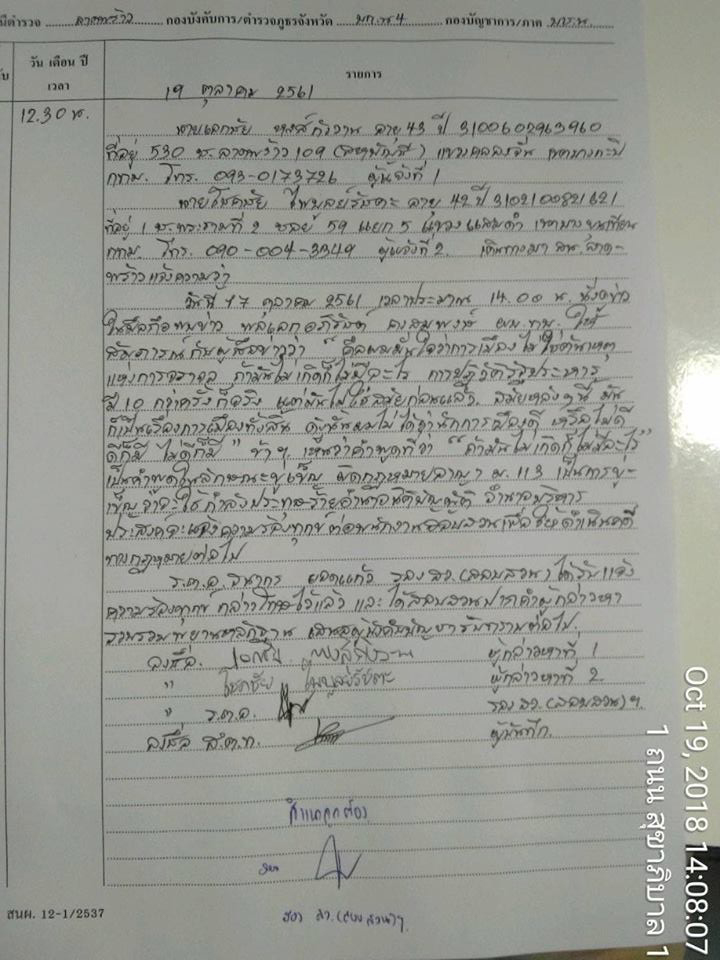 นีตำรวจ ลาดพร้าว กองบังคับการ/ตำรวจภูธรจังหวัด บก.น.4 กองบัญชาการ/ภาค บช.น.
วัน เดือน ปี
เวลา
รายการ
19 ตุลาคม 2561
12.30 น.
นายเอกชัย หงส์กังวาน อายุ 43 ปี 3100602963960
ที่อยู่ 530 ซ.ลาดพร้าว 109 แขวงคลองจั่น เขตบางกะปิ
กทม. โทร. 093-0173726 ผู้แจ้งที่ 1
นายโชคชัย ไพบูลย์รัชตะ อายุ 42 ปี 3102100821621
ที่อยู่ 1 ซ.พระรามที่ 2 ซอย 59 แยก 5 แขวงแสมดำ เขตบางขุนเทียน
กทม. โทร. 090-004-3349 ผู้แจ้งที่ 2. เดินทางมา สน.ลาด-
พร้าวแจ้งความว่า
วันที่ 17 ตุลาคม 2561 เวลาประมาณ 14.00 น.
พลเอกอภิรัชต์ คงสมพงษ์ ผบ.ทบ. ให้
สัมภาษณ์กับผู้สื่อข่าวว่า "คือผมมั่นใจว่าการเมืองไม่ใช่ต้นเหตุ
แห่งการจราจล ถ้ามันไม่เกิดก็ไม่มีอะไร การปฏิวัติรัฐประหาร
มี 10 กว่าครั้งก็จริง แต่มันไม่ใช่สมัยก่อนแล้ว. สมัยหลังๆนี้ มัน
ก็เป็นเรื่องการเมืองทั้งสิ้น ดังนั้นผมไม่ได้ว่านักการเมืองดี หรือไม่ดี
ดีก็มี ไม่ดีก็มี" ข้าฯ เห็นว่าคำพูดที่ว่า "ถ้ามันไม่เกิดก็ไม่มีอะไร"
เป็นคำพูดในลักษณะขู่เข็ญ ผิดกฎหมายอาญา ม.113 เป็นการขู่-
เข็ญว่าจะใช้กำลังประทุษร้ายอำนาจนิติบัญญัติ อำนาจบริหาร
ประสงค์จะแจ้งความร้องทุกข์ต่อพนักงานสอบสวนเพื่อให้ดำเนินคดี
ทางกฎหมายต่อไป
ร.ต.อ.ธนากร ยอดแก้ว รอง สว.(สอบสวน) ได้รับแจ้ง
ความร้องทุกข์ กล่าวโทษไว้แล้ว และได้สอบสวนปากคำผู้กล่าวหา
รวบรวมพยานหลักฐาน เสนอผู้บังคับบัญชารับทราบต่อไป.
ลงชื่อ. เอกชัย หงส์กังวาน ผู้กล่าวหาที่ 1
" โชคชัย ไพบูลย์รัชตะ ผู้กล่าวหาที่ 2
" ร.ต.อ. รอง สว.(สอบสวน)ฯ
ลงชื่อ ส.ต.ท. ผู้บันทึก.
สำเนาถูกต้อง
รอง สว.(สอบสวน)ฯ
สนผ. 12-1/2537
Oct 19, 2018 14:08:07
1 ถนน สุขาภิบาล 1